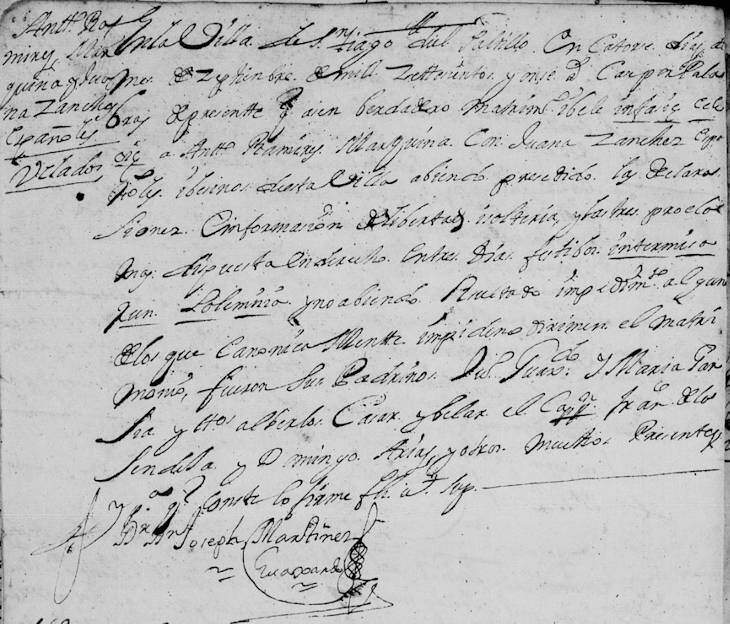 Antt.o Ra
mires, Mar
quina y Jua
na Zanches
Españoles
Velados
En la Villa de S.n tiago del Saltillo. En Catorse dias, del
mes de Zeptiembre de mill Zettesientos y onse a.s Case por Pala
bras de presentte q asen berdadero matrim.o ibele infacie
a Antt.o Ramires Marquina. Con Juana Zanchez Espa
ñoles ibesinos desta Villa abiendo presedido las declara
siones Einformasion de libertad isolteria, y las tres procla
mas dispuesta En derecho Entres dias festibos intermisa
solemnia y no abiendo Resultado impedim.to al gun
delos que Canonica Mentte impiden o dirimen el matri
monio, fueron sus Padrinos y Maria Gar
sia y ttos alberlos Casar y belar el Capp.n Fran.co delos
Sendeja y Domingo Arias, y otros muchos Presentes
y p.a q Conste lo firme fh vt sup.
Br Dn Joseph Martinez
Guajardo